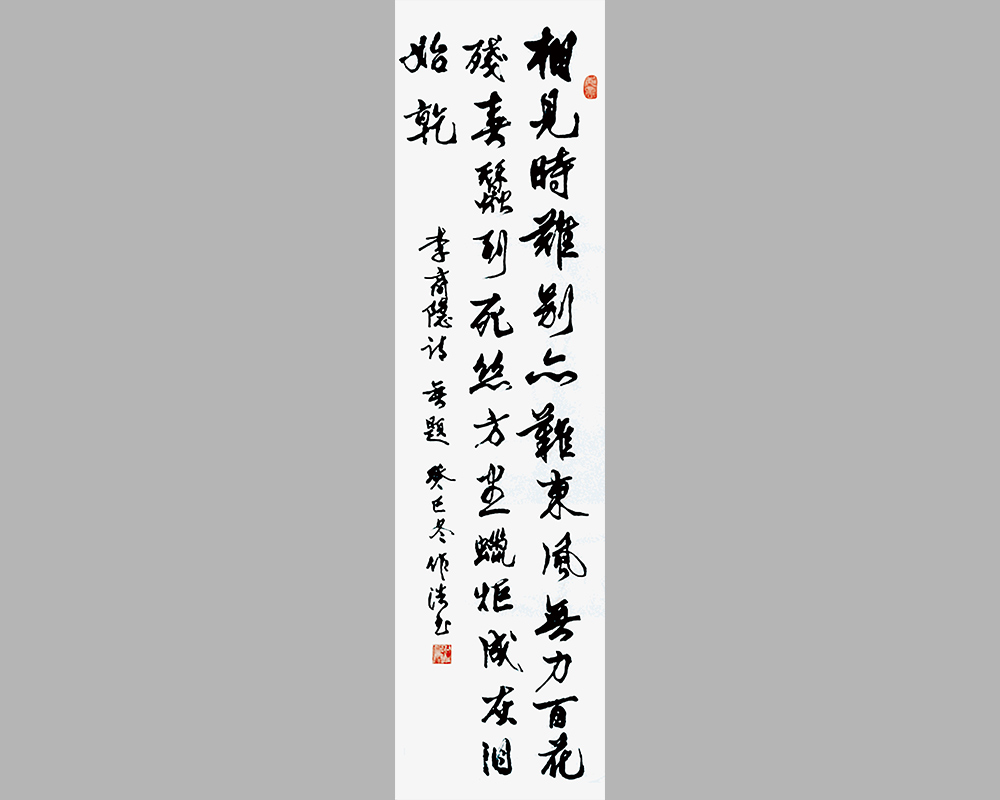 相見時難別亦難東風無力百花
殘春蠶到死絲方盡蠟炬成灰泪
始乾
李商隱诗 無題 癸巳冬作浩书